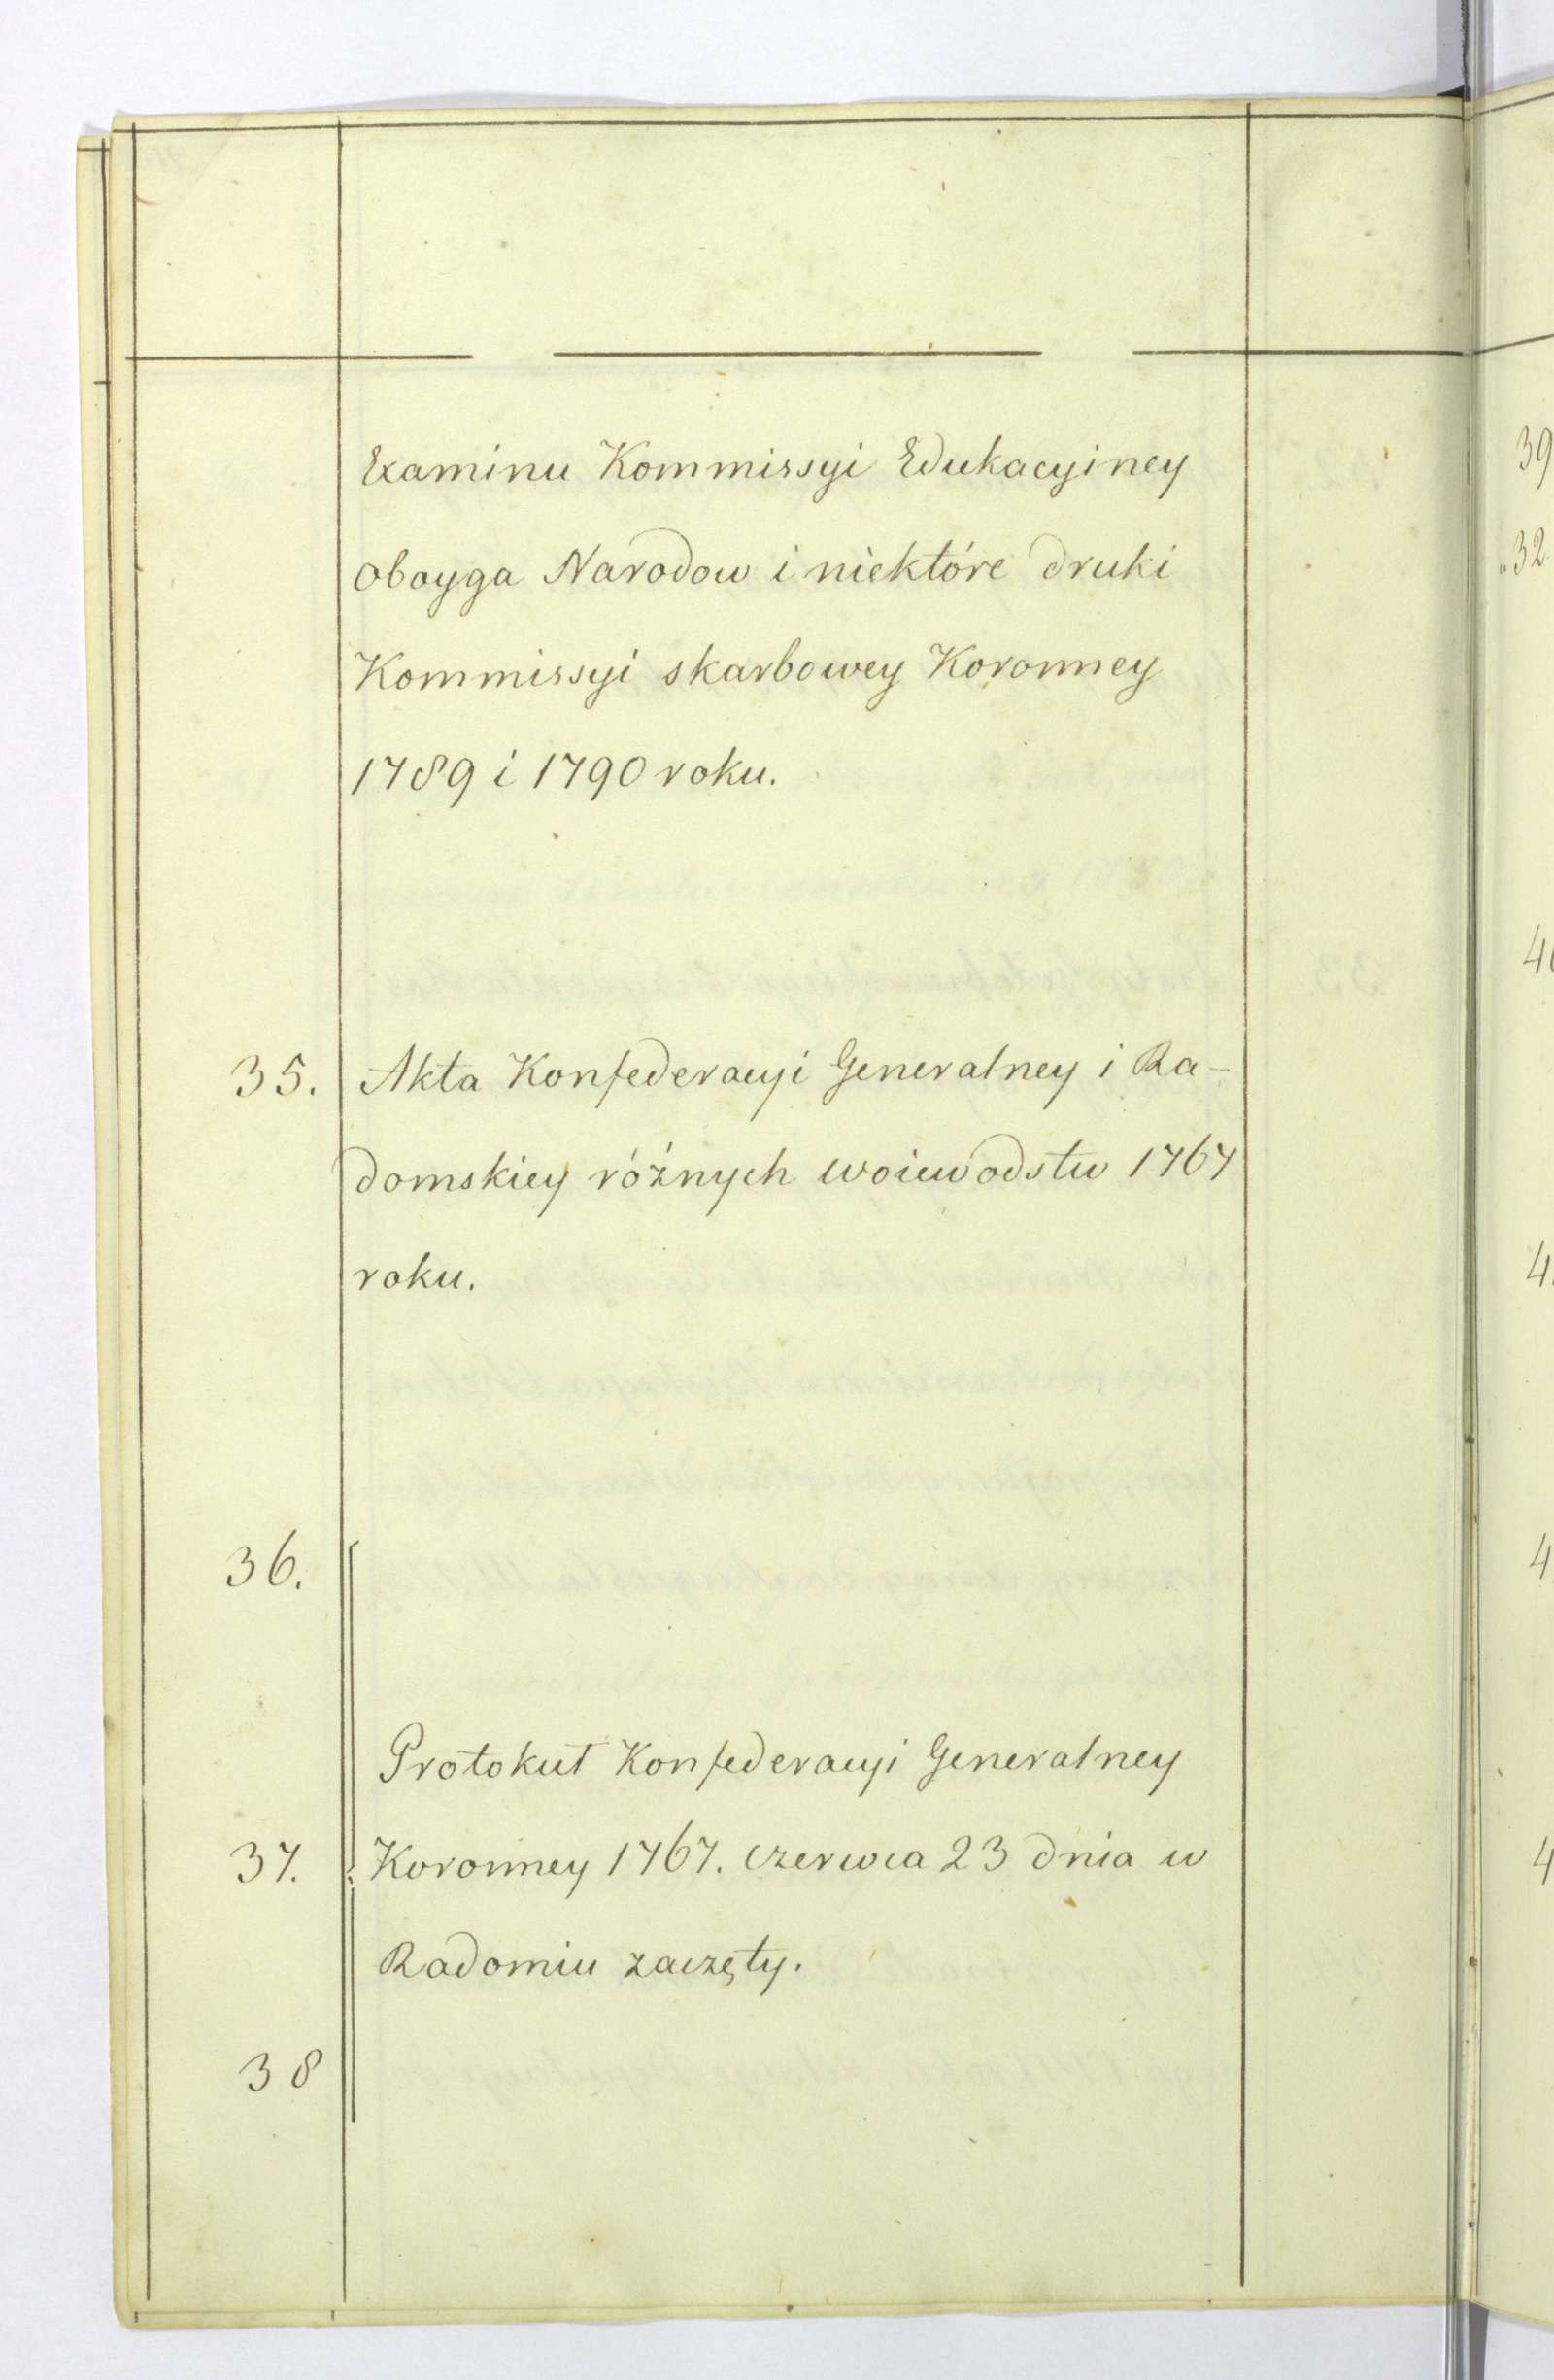 Examinu Kommissyi Edukacyiney
oboyga Narodow i niektóre druki
Kommissyi skarbowey Koronney
1789 i 1790 roku.
35. Akta Konfederacyi Generalney i Ra-
domskiey różnych woiewodstw 1767
roku.
36.
Protokuł Konfederacyi Generalney
37. Koronney 1767. czerwca 23 dnia w
Radomiu zaczęty.
38
39
32
4
4